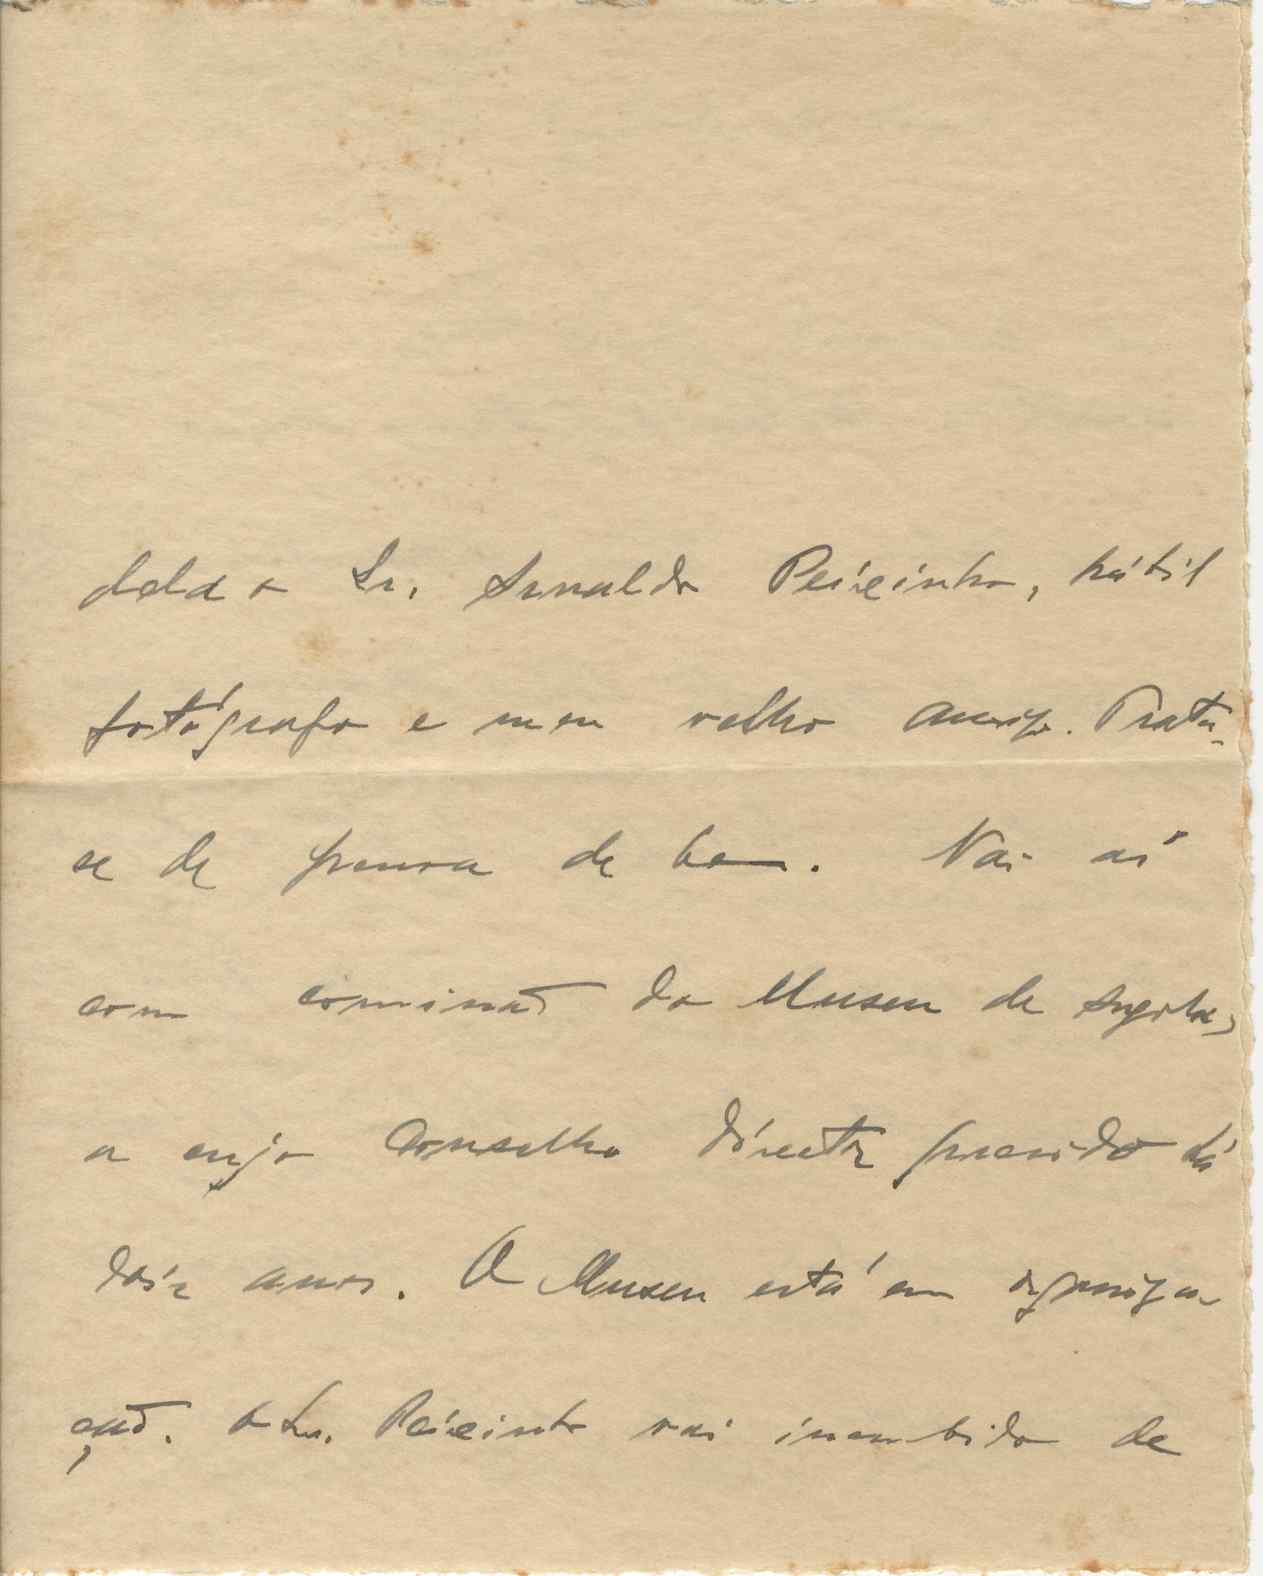 dela o Sr. Arnaldo Peixinho, hábil
fotógrafo e meu velho amigo. Trata-
se de pessoa de bem. Vai aí
com comissão do Museu de Angola,
a cujo Conselho director presido há
dois anos. O Museu está em organiza-
ção. O Sr. Peixinho vai incumbido de